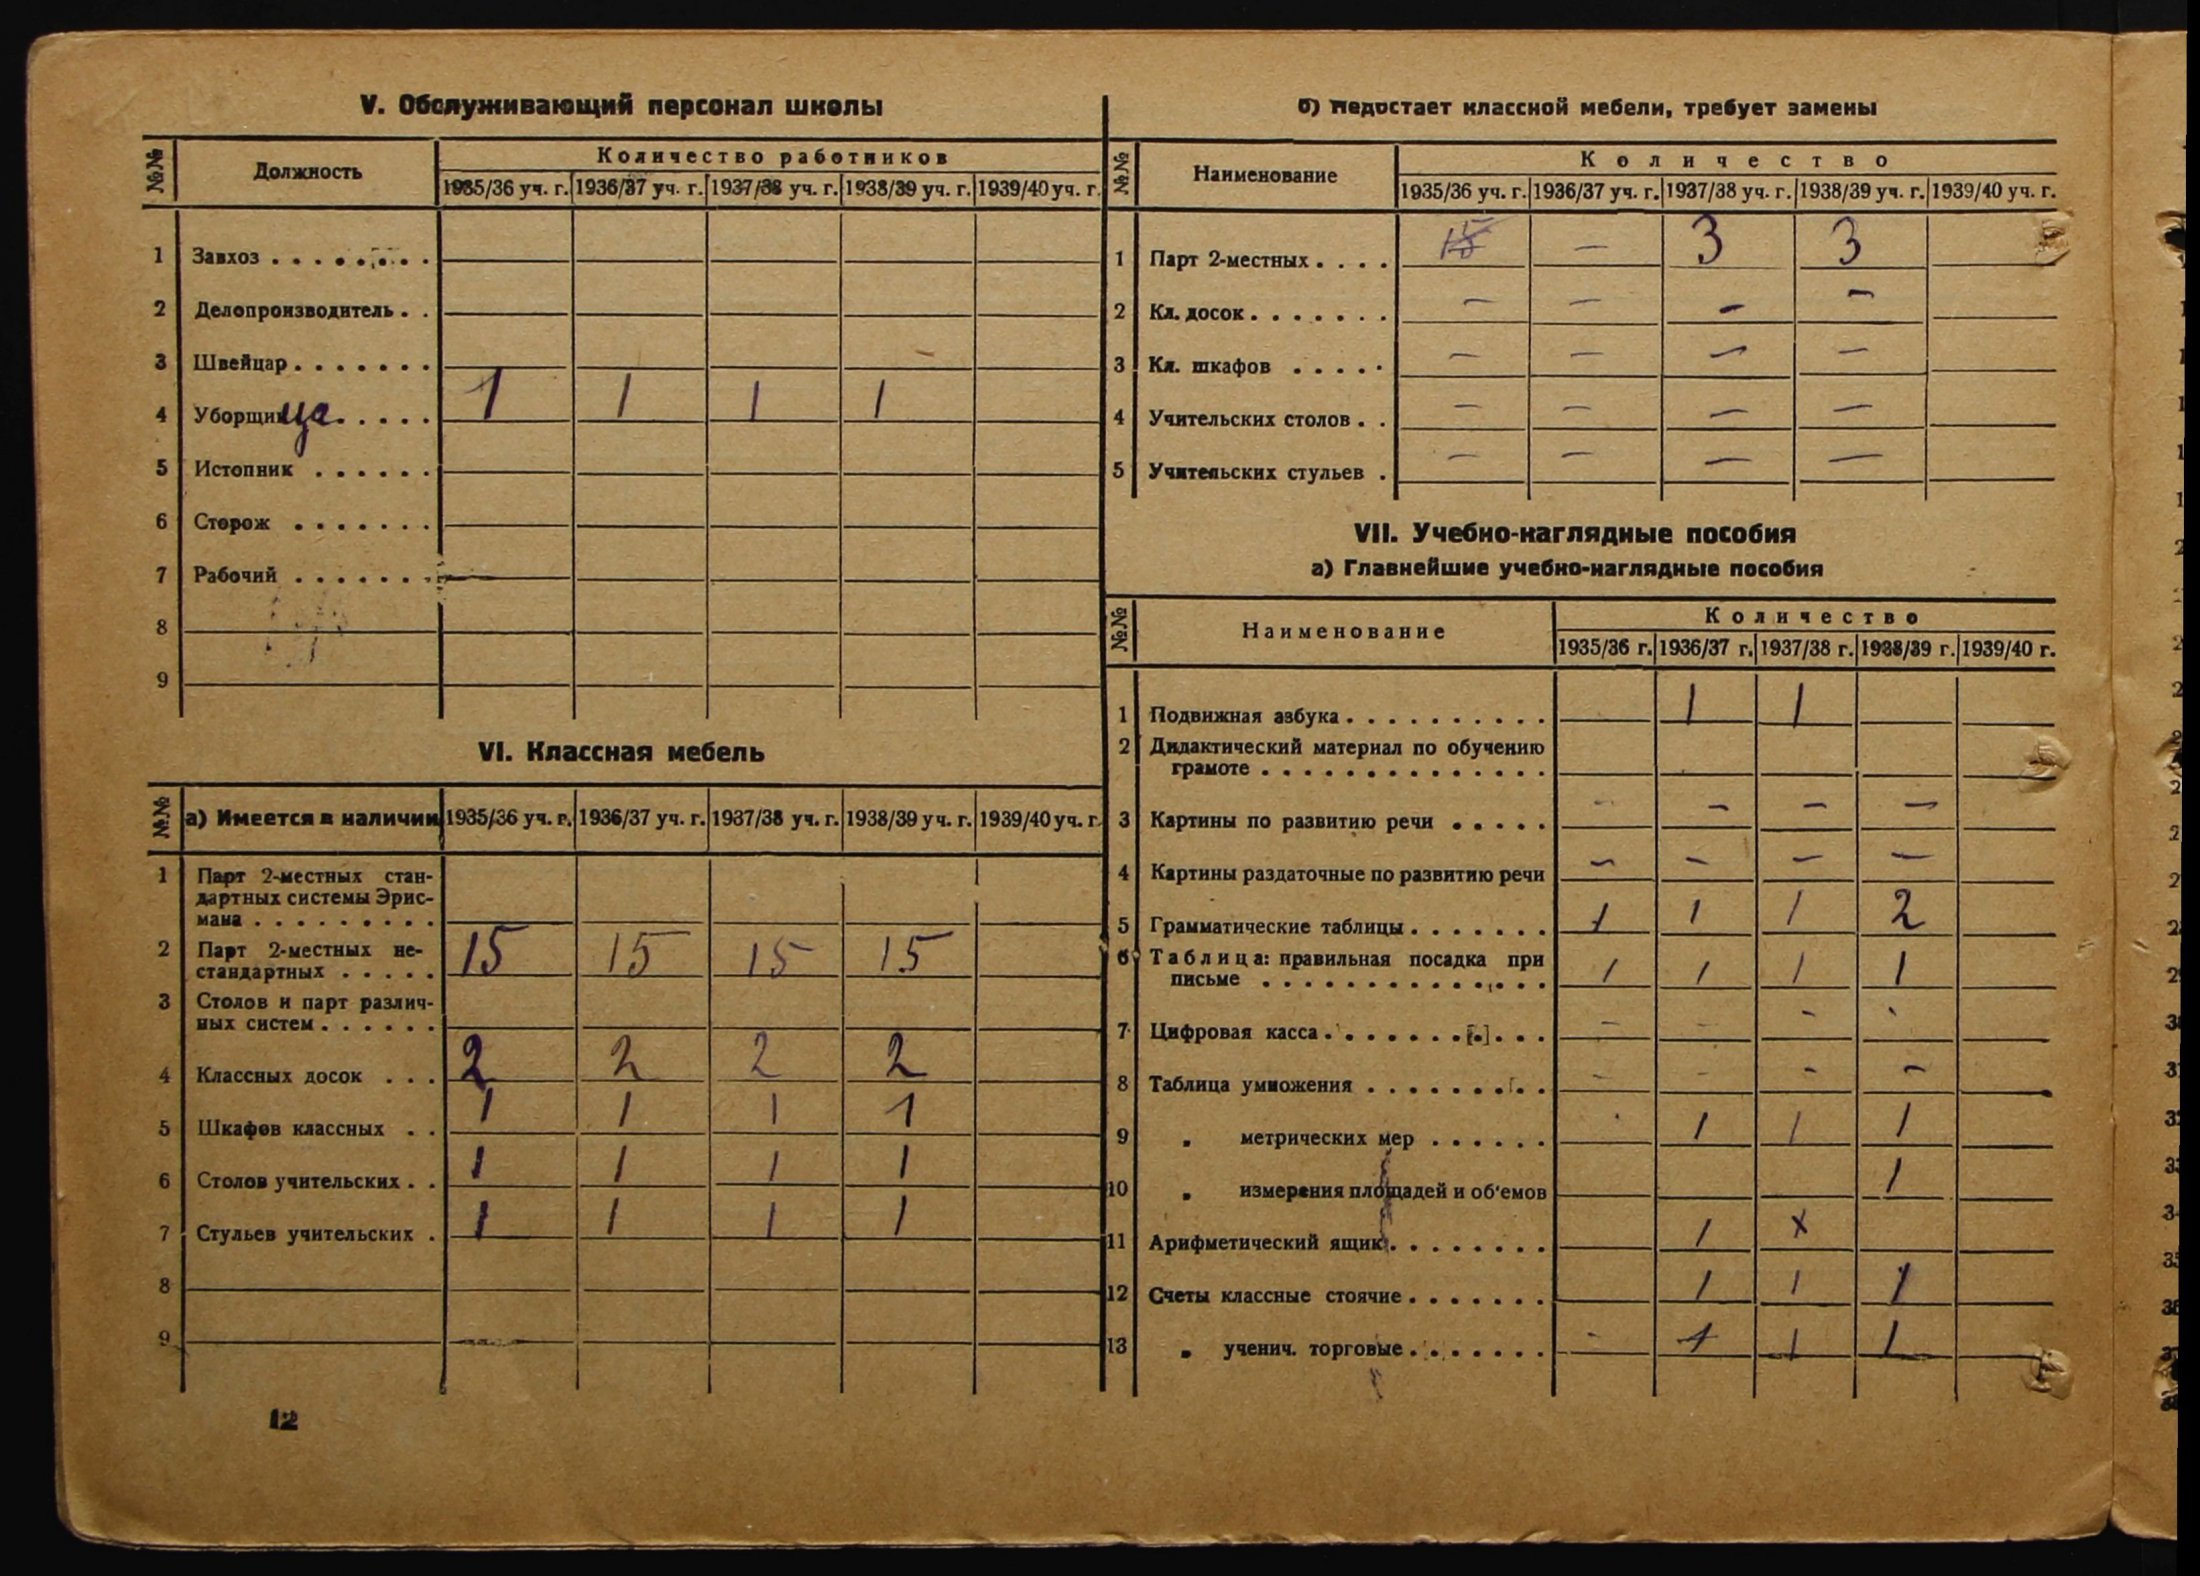 V. Обслуживающий персонал школы
№№ Должность Количество работников
1935/36 уч. г. 1936/37 уч. г. 1937/38 уч. г. 1938/39 уч. г. 1939/40 уч. г.
1 Завхоз . . . . . . . .
2 Делопроизводитель . .
3 Швейцар . . . . . . .
4 Уборщица . . . . 1 1 1 1
5 Истопник . . . . . .
6 Сторож . . . . . . .
7 Рабочий . . . . . . .
8
9
VI. Классная мебель
№№ а) Имеется в наличии 1935/36 уч. г. 1936/37 уч. г. 1937/38 уч. г. 1938/39 уч. г. 1939/40 уч. г.
1 Парт 2-местных стан-
дартных системы Эрис-
мана . . . . . . . . .
2 Парт 2-местных не-
стандартных . . . . . 15 15 15 15
3 Столов и парт различ-
ных систем . . . . . .
4 Классных досок . . . 2 2 2 2
5 Шкафов классных . . 1 1 1 1
6 Столов учительских . . 1 1 1 1
7 Стульев учительских . 1 1 1 1
8
9
12
б) Недостает классной мебели, требует замены
№№ Наименование Количество
1935/36 уч. г. 1936/37 уч. г. 1937/38 уч. г. 1938/39 уч. г. 1939/40 уч. г.
1 Парт 2-местных . . . . 15 — 3 3
2 Кл. досок . . . . . . . — — — —
3 Кл. шкафов . . . . . — — — —
4 Учительских столов . . — — — —
5 Учительских стульев . — — — —
VII. Учебно-наглядные пособия
а) Главнейшие учебно-наглядные пособия
№№ Наименование Количество
1935/36 г. 1936/37 г. 1937/38 г. 1938/39 г. 1939/40 г.
1 Подвижная азбука . . . . . . . . . . 1 1
2 Дидактический материал по обучению
грамоте . . . . . . . . . . . . . .
3 Картины по развитию речи . . . . . - — — —
4 Картины раздаточные по развитию речи — — — —
5 Грамматические таблицы . . . . . . . 1 1 1 2
6 Таблица: правильная посадка при
письме . . . . . . . . . . . . . 1 1 1 1
7 Цифровая касса . . . . . . . [.] . . . - - - -
8 Таблица умножения . . . . . . . . . - - - -
9 „ метрических мер . . . . . . 1 1 1
10 „ измерения площадей и об'емов 1
11 Арифметический ящик . . . . . . . . 1 х
12 Счеты классные стоячие . . . . . . . 1 1 1
13 „ ученич. торговые . . . . . . . - 1 1 1